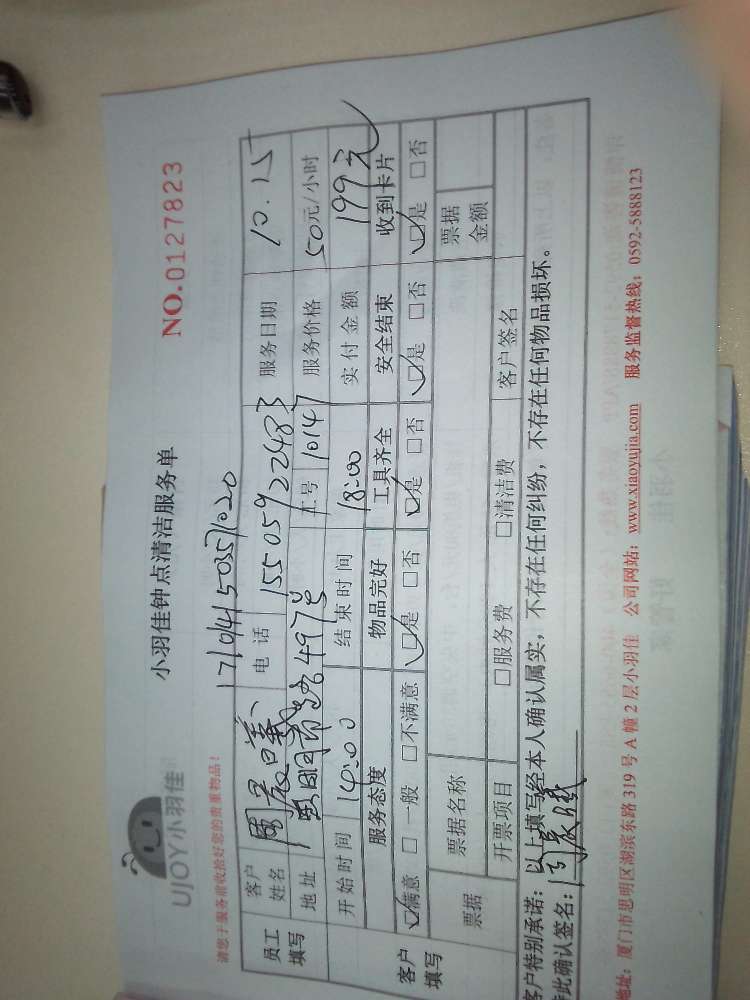 UJOY小羽佳
小羽佳钟点清洁服务单
NO.0127823
请您于服务前收拾好您的贵重物品!
1710141503571020
员工填写
客户姓名 周晨曦 电话 15505922483 服务日期 10.15
地址 思明南路497号 工号 10147 服务价格 50元/小时
开始时间 14:00 结束时间 18:00 实付金额 199元
客户填写
服务态度 物品完好 工具齐全 安全结束 收到卡片
☑满意 □一般 □不满意 ☑是 □否 ☑是 □否 ☑是 □否 ☑是 □否
票据 票据名称 票据金额
开票项目 □服务费 □清洁费 客户签名
客户特别承诺:以上填写经本人确认属实,不存在任何纠纷,不存在任何物品损坏。
特此确认签名:周晨曦
地址:厦门市思明区湖滨东路319号A幢2层小羽佳 公司网站:www.xiaoyujia.com 服务监督热线:0592-5888123